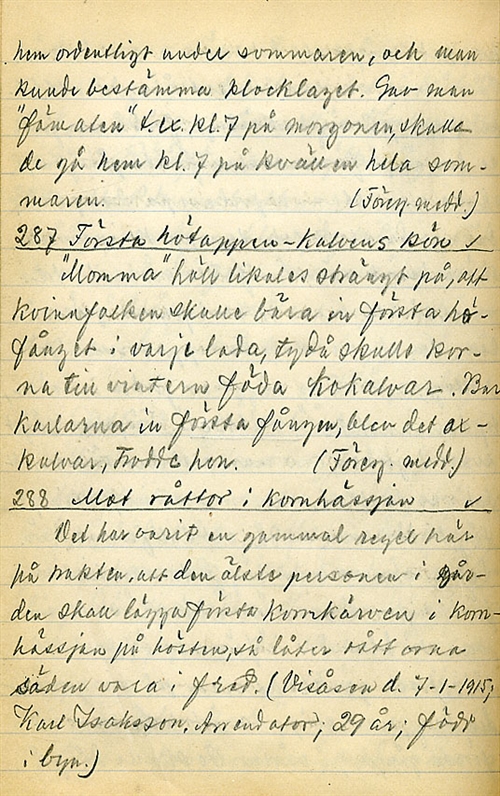 hem ordentligt under sommaren, och man
kunde bestämma klocklaget. Gav man
"fämaten" t.ex. kl. 7 på morgonen, skulle
de gå hem kl. 7 på kvällen hela som-
maren. (Föreg. medd.)
287 Första hötappen - Kalvens kön ✓
"Momma" höll likales strängt på, att
kvinnfolken skulle bära in första hö-
fånget i varje lada, ty då skulle kor-
na till vintern föda kokalvar. Bar
karlarna in första fången, blev det ox-
kalvar, trodde hon. (Föreg. medd.)
288 Mot råttor i kornhässjan ✓
Det har varit en gammal regel här
på trakten, att den älste personen i går-
den skall lägga första kornkärven i korn-
hässjan på hösten, så låter råttorna
säden vara i fred. (Visåsen d. 7-1-1915;
Karl Isaksson, Arrendator; 29 år; född
i byn.)